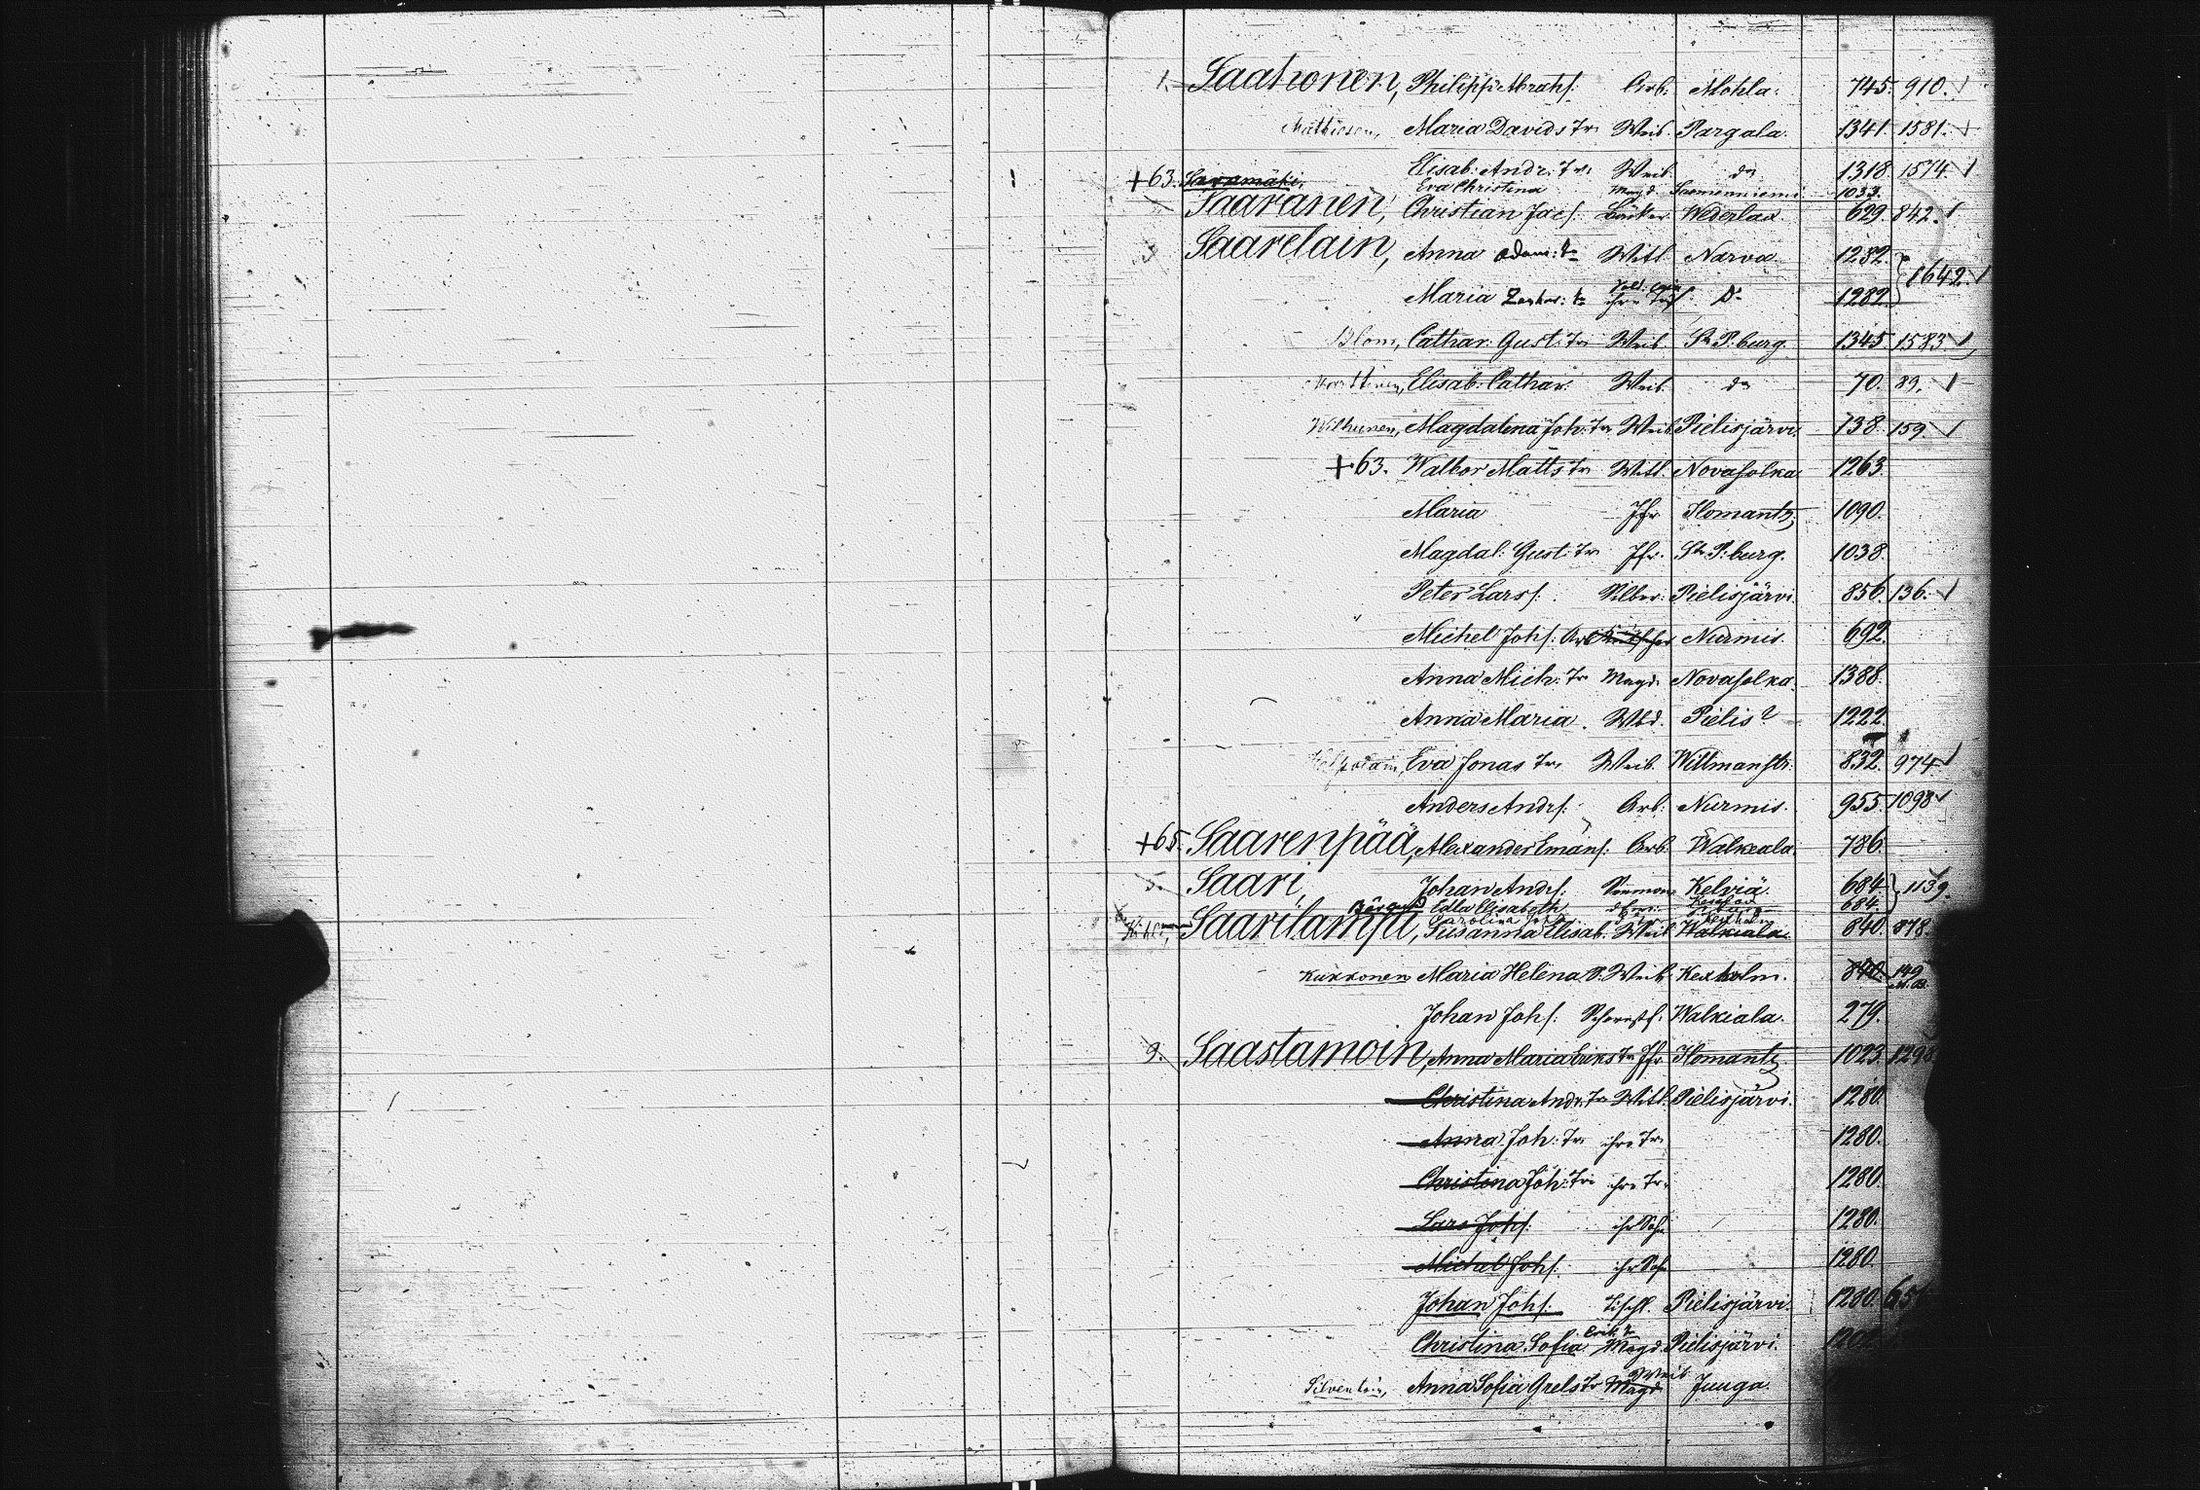 1. Saahonen, Philipp Abrahs: Arb: Mohla. 745. 910.
Mathiesen, Maria Davids Tr Weib. Pargala. 1341. 1581.
Elisab: Andr: Tr Weib. do 1318. 1574.
+63. Saramäki, Eva Christina Magd. Saemenniemi 1033.
Saaranen, Christian Jacs. Bäcker Wederlax 629. 842.
3. Saarelain, Anna Adam: tr Witl. Narva. 1282. 1642.
Maria Zachar: tr ihre Do 1282.
Blom, Cathar: Gust: Tr Weib. St P. burg. 1345. 1583.
Elisab: Cathar: Weib. do 70. 89.
Wilhunen, Magdalena Joh: Tr Weib. Pielisjärvi. 138. 159.
+63. Walbor Matts Tr Witl. Novasolka. 1263.
Maria Jfr Ilomants 1090.
Magdal: Gust: Tr Jfr. St P: burg. 1038.
Peter Larss: Silber: Pielisjärvi. 856. 136.
Michel Johs: Arb Nurmis. 692.
Anna Mich: Tr Magd. Novasolka. 1388.
Anna Maria. Wbd. Pielis? 1222.
Eva Jonas Tr Weib. Willmanstr: 832. 974
Anders Andrs: Arb: Nurmis. 955. 1098
+65. Saarenpää, Alexander Emans: Arb. Walkeala. 786.
5. Saari, Johan Andrs: Kelviä. 684. 1139.
Edla Elisabeth 684.
Carolina
Saarilampi, Susanna Elisab. Weib Walkiala. 640. 878.
Kukkonen Maria Helena Weib. Kexholm. 840. 149
Johan Johs: Walkiala. 279.
9. Saastamoin, Anna Maria Eriks Tr Jfr Ilomants 1023. 1298.
Christina Andr: Tr Witl. Pielisjärvi. 1280.
Anna Joh: Tr ihre Tr 1280.
Christina Joh: Tr ihre Tr 1280.
Lars Johs: ihr Sohn 1280.
Michel Johs: ihr Sohn 1280.
Johan Johs: Tischl. Pielisjärvi. 1280.
Christina Sofia Erik tr Magd Pielisjärvi.
Silvenlain, Anna Sofia Grels Tr Magd Weib Juuga.